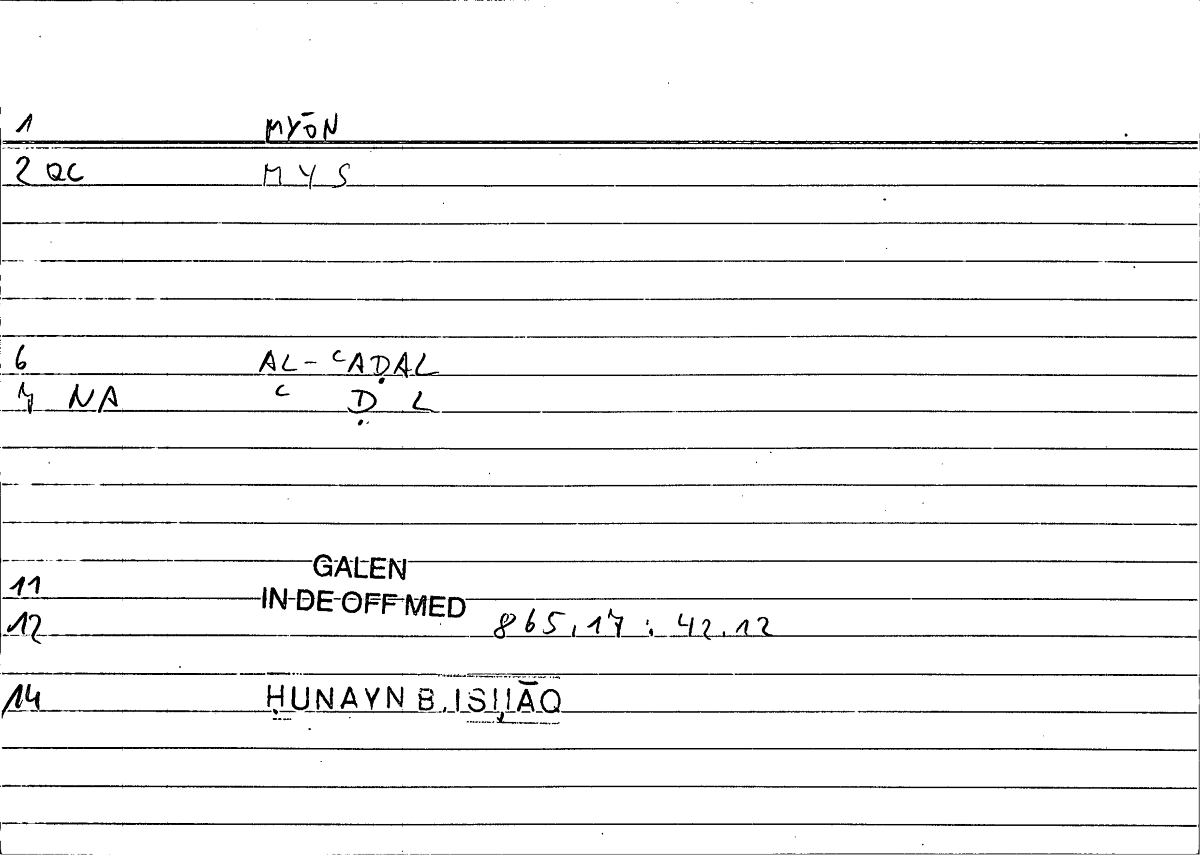 1 MYŌN
2 QC MYS
6 AL-ᶜAḌAL
7 NA ᶜ Ḍ L
GALEN
11 IN DE OFF MED
12 865,17 : 42.12
14 ḤUNAYN B. ISḤĀQ